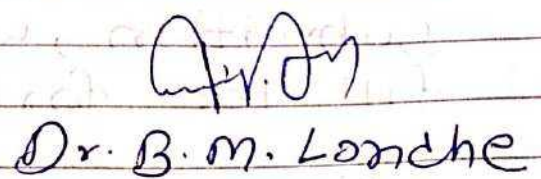 Dr. B. M. Londhe